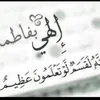 إلهي بفاطمة
لقسم لو تعلمون عظيم